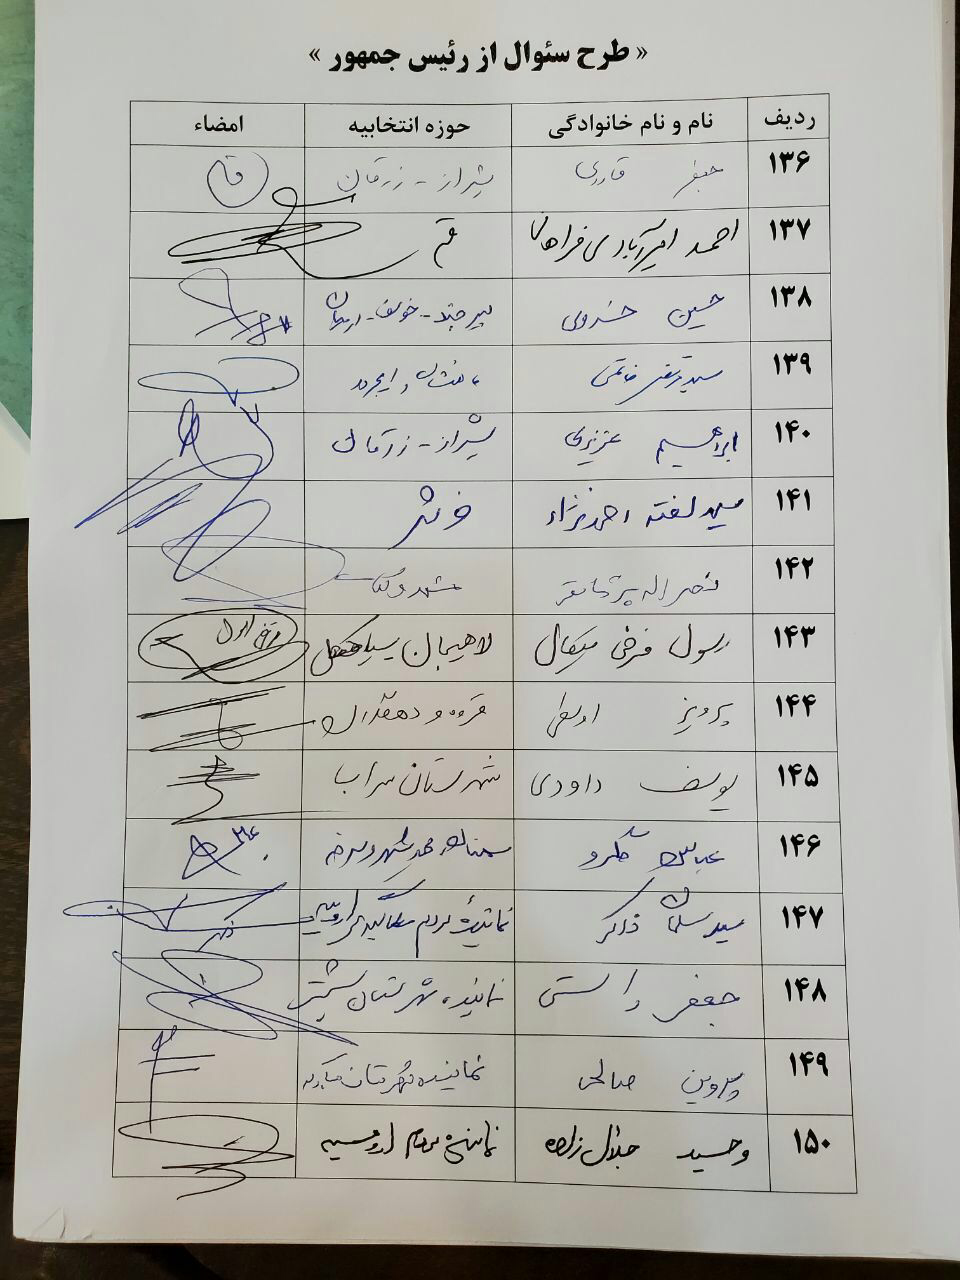 « طرح سئوال از رئیس جمهور »
ردیف نام و نام خانوادگی حوزه انتخابیه امضاء
۱۳۶ جعفر قادری شیراز - زرقان
۱۳۷ احمد امیرآبادی فراهانی قم
۱۳۸ حسین خسروی بیرجند - خوسف - درمیان
۱۳۹ سید مرتضی خاتمی ماهنشان و ایجرود
۱۴۰ ابراهیم عزیزی شیراز - زرقان
۱۴۱ سید لفته احمدنژاد
۱۴۲ نصراله پژمانفر مشهد و کلات
۱۴۳ رسول فرخی میکال لاهیجان سیاهکل
۱۴۴ پرویز اوسطی قروه و دهگلان
۱۴۵ یوسف داودی شهرستان سراب
۱۴۶ عباس گلرو سمنان مهدیشهر و سرخه
۱۴۷ سید سلمان ذاکر نماینده مردم ارومیه
۱۴۸ جعفر راستی نماینده شهرستان شبستر
۱۴۹ پروین صالحی نماینده شهرستان مبارکه
۱۵۰ وحید جلال زاده نماینده مردم ارومیه